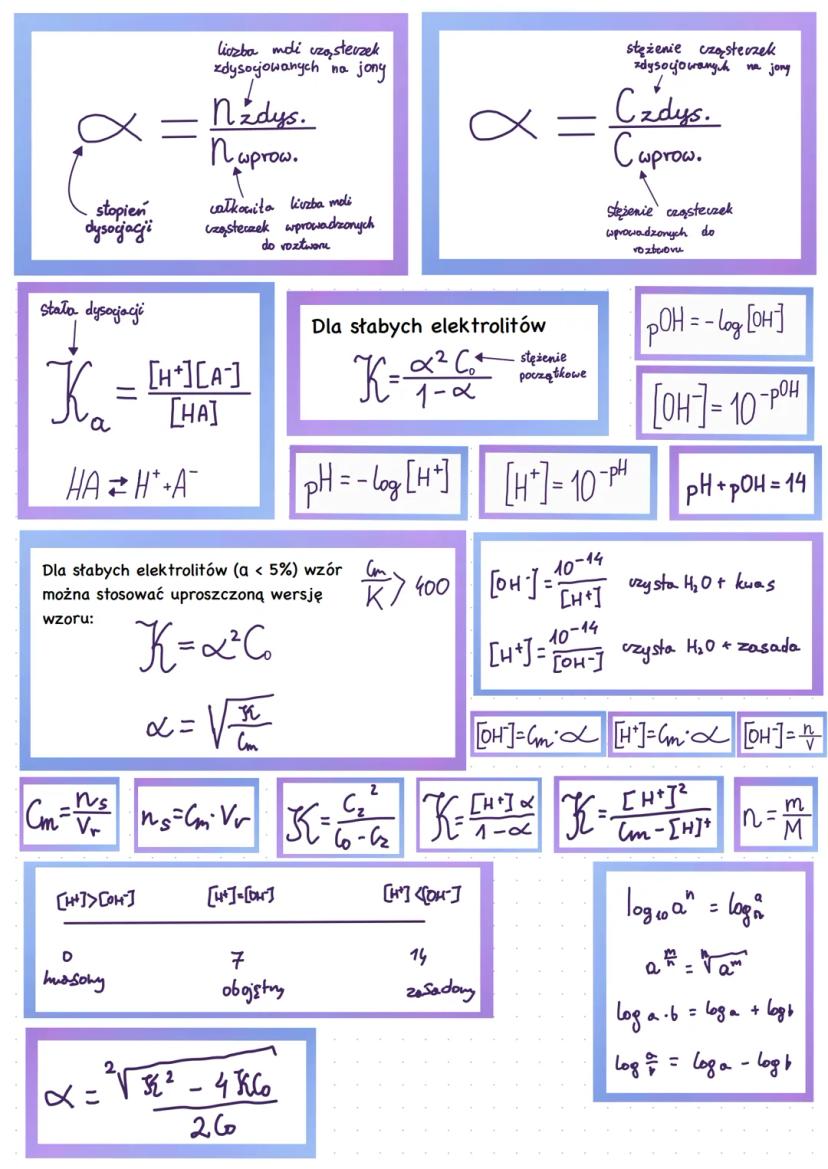 liczba moli cząsteczek
zdysocjowanych na jony
α = n zdys. / n wprow.
stopień
dysocjacji
całkowita liczba moli
cząsteczek wprowadzonych
do roztworu
stężenie cząsteczek
zdysocjowanych na jony
α = C zdys. / C wprow.
stężenie cząsteczek
wprowadzonych do
roztworu
stała dysocjacji
Kₐ = [H⁺][A⁻] / [HA]
HA ⇄ H⁺ + A⁻
Dla słabych elektrolitów
K = α² C₀ / 1 - α
stężenie
początkowe
pOH = - log [OH⁻]
[OH⁻] = 10^-pOH
pH = - log [H⁺]
[H⁺] = 10^-pH
pH + pOH = 14
Dla słabych elektrolitów (a < 5%) wzór
można stosować uproszczoną wersję
wzoru:
Cm / K > 400
K = α² C₀
α = √(K / Cm)
[OH⁻] = 10⁻¹⁴ / [H⁺] czysta H₂O + kwas
[H⁺] = 10⁻¹⁴ / [OH⁻] czysta H₂O + zasada
[OH⁻] = Cm · α
[H⁺] = Cm · α
[OH⁻] = n / V
Cm = nₛ / Vr
nₛ = Cm · Vr
K = Cz² / C₀ - Cz
K = [H⁺] α / 1 - α
K = [H⁺]² / Cm - [H]⁺
n = m / M
[H⁺] > [OH⁻] [H⁺] = [OH⁻] [H⁺] < [OH⁻]
0 7 14
kwasowy obojętny zasadowy
log₁₀ aⁿ = log
a^(m/n) = ⁿ√aᵐ
log a · b = log a + log b
log a/b = log a - log b
α = ²√(K² - 4KC₀ / 2C₀)